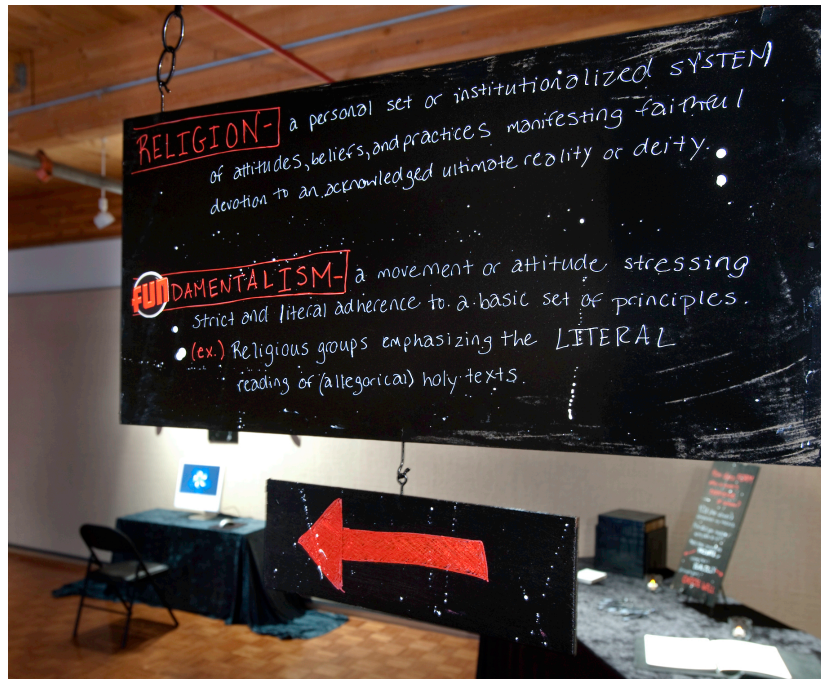 RELIGION- a personal set or institutionalized SYSTEM
of attitudes, beliefs, and practices manifesting faithful
devotion to an acknowledged ultimate reality or deity.
FUNDAMENTALISM- a movement or attitude stressing
strict and literal adherence to a basic set of principles.
(ex.) Religious groups emphasizing the LITERAL
reading of (allegorical) holy texts.